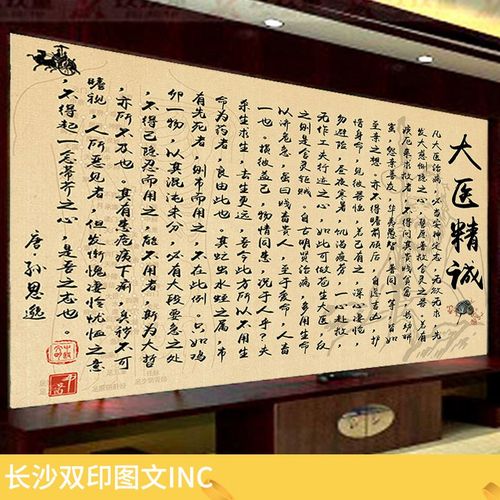 大医精诚
凡大医治病，必当安神定志，无欲无求，先
发大慈恻隐之心，誓愿普救含灵之苦，若有
疾厄来求救者，不得问其贵贱贫富，长幼妍
蚩，怨亲善友，华夷愚智，普同一等，皆如
至亲之想，亦不得瞻前顾后，自虑吉凶，护
惜身命，见彼苦恼，若己有之，深心凄怆，
勿避险，昼夜寒暑，饥渴疲劳，一心赴救，
无作工夫行迹之心，如此可做苍生大医，反
之则是含灵巨贼，自古明贤治病，多用生命
以济危急，虽曰贱畜贵人，至于爱命，人畜
一也，损彼益己，物情同患，况于人乎？夫
杀生求生，去生更远，吾今此方所以不用生
命为药者，良由此也。其虻虫水蛭之属，市
有先死者，则市而用之，不在此例，只如鸡
卵一物，以其混沌未分，必有大段要急之处
，不得已隐忍而用之，能不用者，斯为大哲
，亦所不及也。其有患疮痍下痢，臭秽不可
瞻视，人所恶见者，但发惭愧凄怜忧恤之意
，不得起一念蒂芥之心，是吾之志也。
唐·孙思邈
长沙双印图文INC